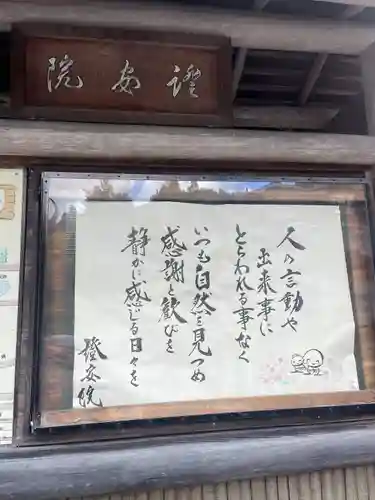 證安院
人の言動や
出来事に
とらわれる事なく
いつも自然を見つめ
感謝と歓びを
静かに感じる日々を
證安院